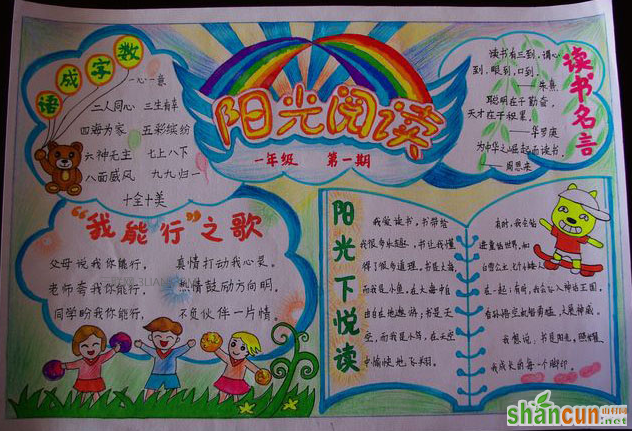 数字成语
一心一意
二人同心 三生有幸
四海为家 五彩缤纷
六神无主 七上八下
八面威风 九九归一
十全十美
阳光阅读
一年级 第一期
读书名言
读书有三到,谓心
到,眼到,口到。
——朱熹
聪明在于勤奋,
天才在于积累。
——华罗庚
为中华之崛起而读书。
——周恩来
“我能行”之歌
父母说我你能行, 真情打动我心灵。
老师夸我你能行, 热情鼓励方向明。
同学盼我你能行, 不负伙伴一片情。
阳光下悦读
我爱读书,书带给
我很多乐趣,书让我懂
得了很多道理。书是大海,
而我是小鱼,在大海中自
由自在地遨游;书是天
空,而我是小鸟,在天空
中愉快地飞翔。
有时,我会钻
进童话世界,和
白雪公主、七个小矮人
在一起;有时,我会走入神话王国,
看孙悟空机智勇猛,大展神威。
我想说,书是阳光,照耀着
我成长的每一个脚印。
shancun
山村网
.net